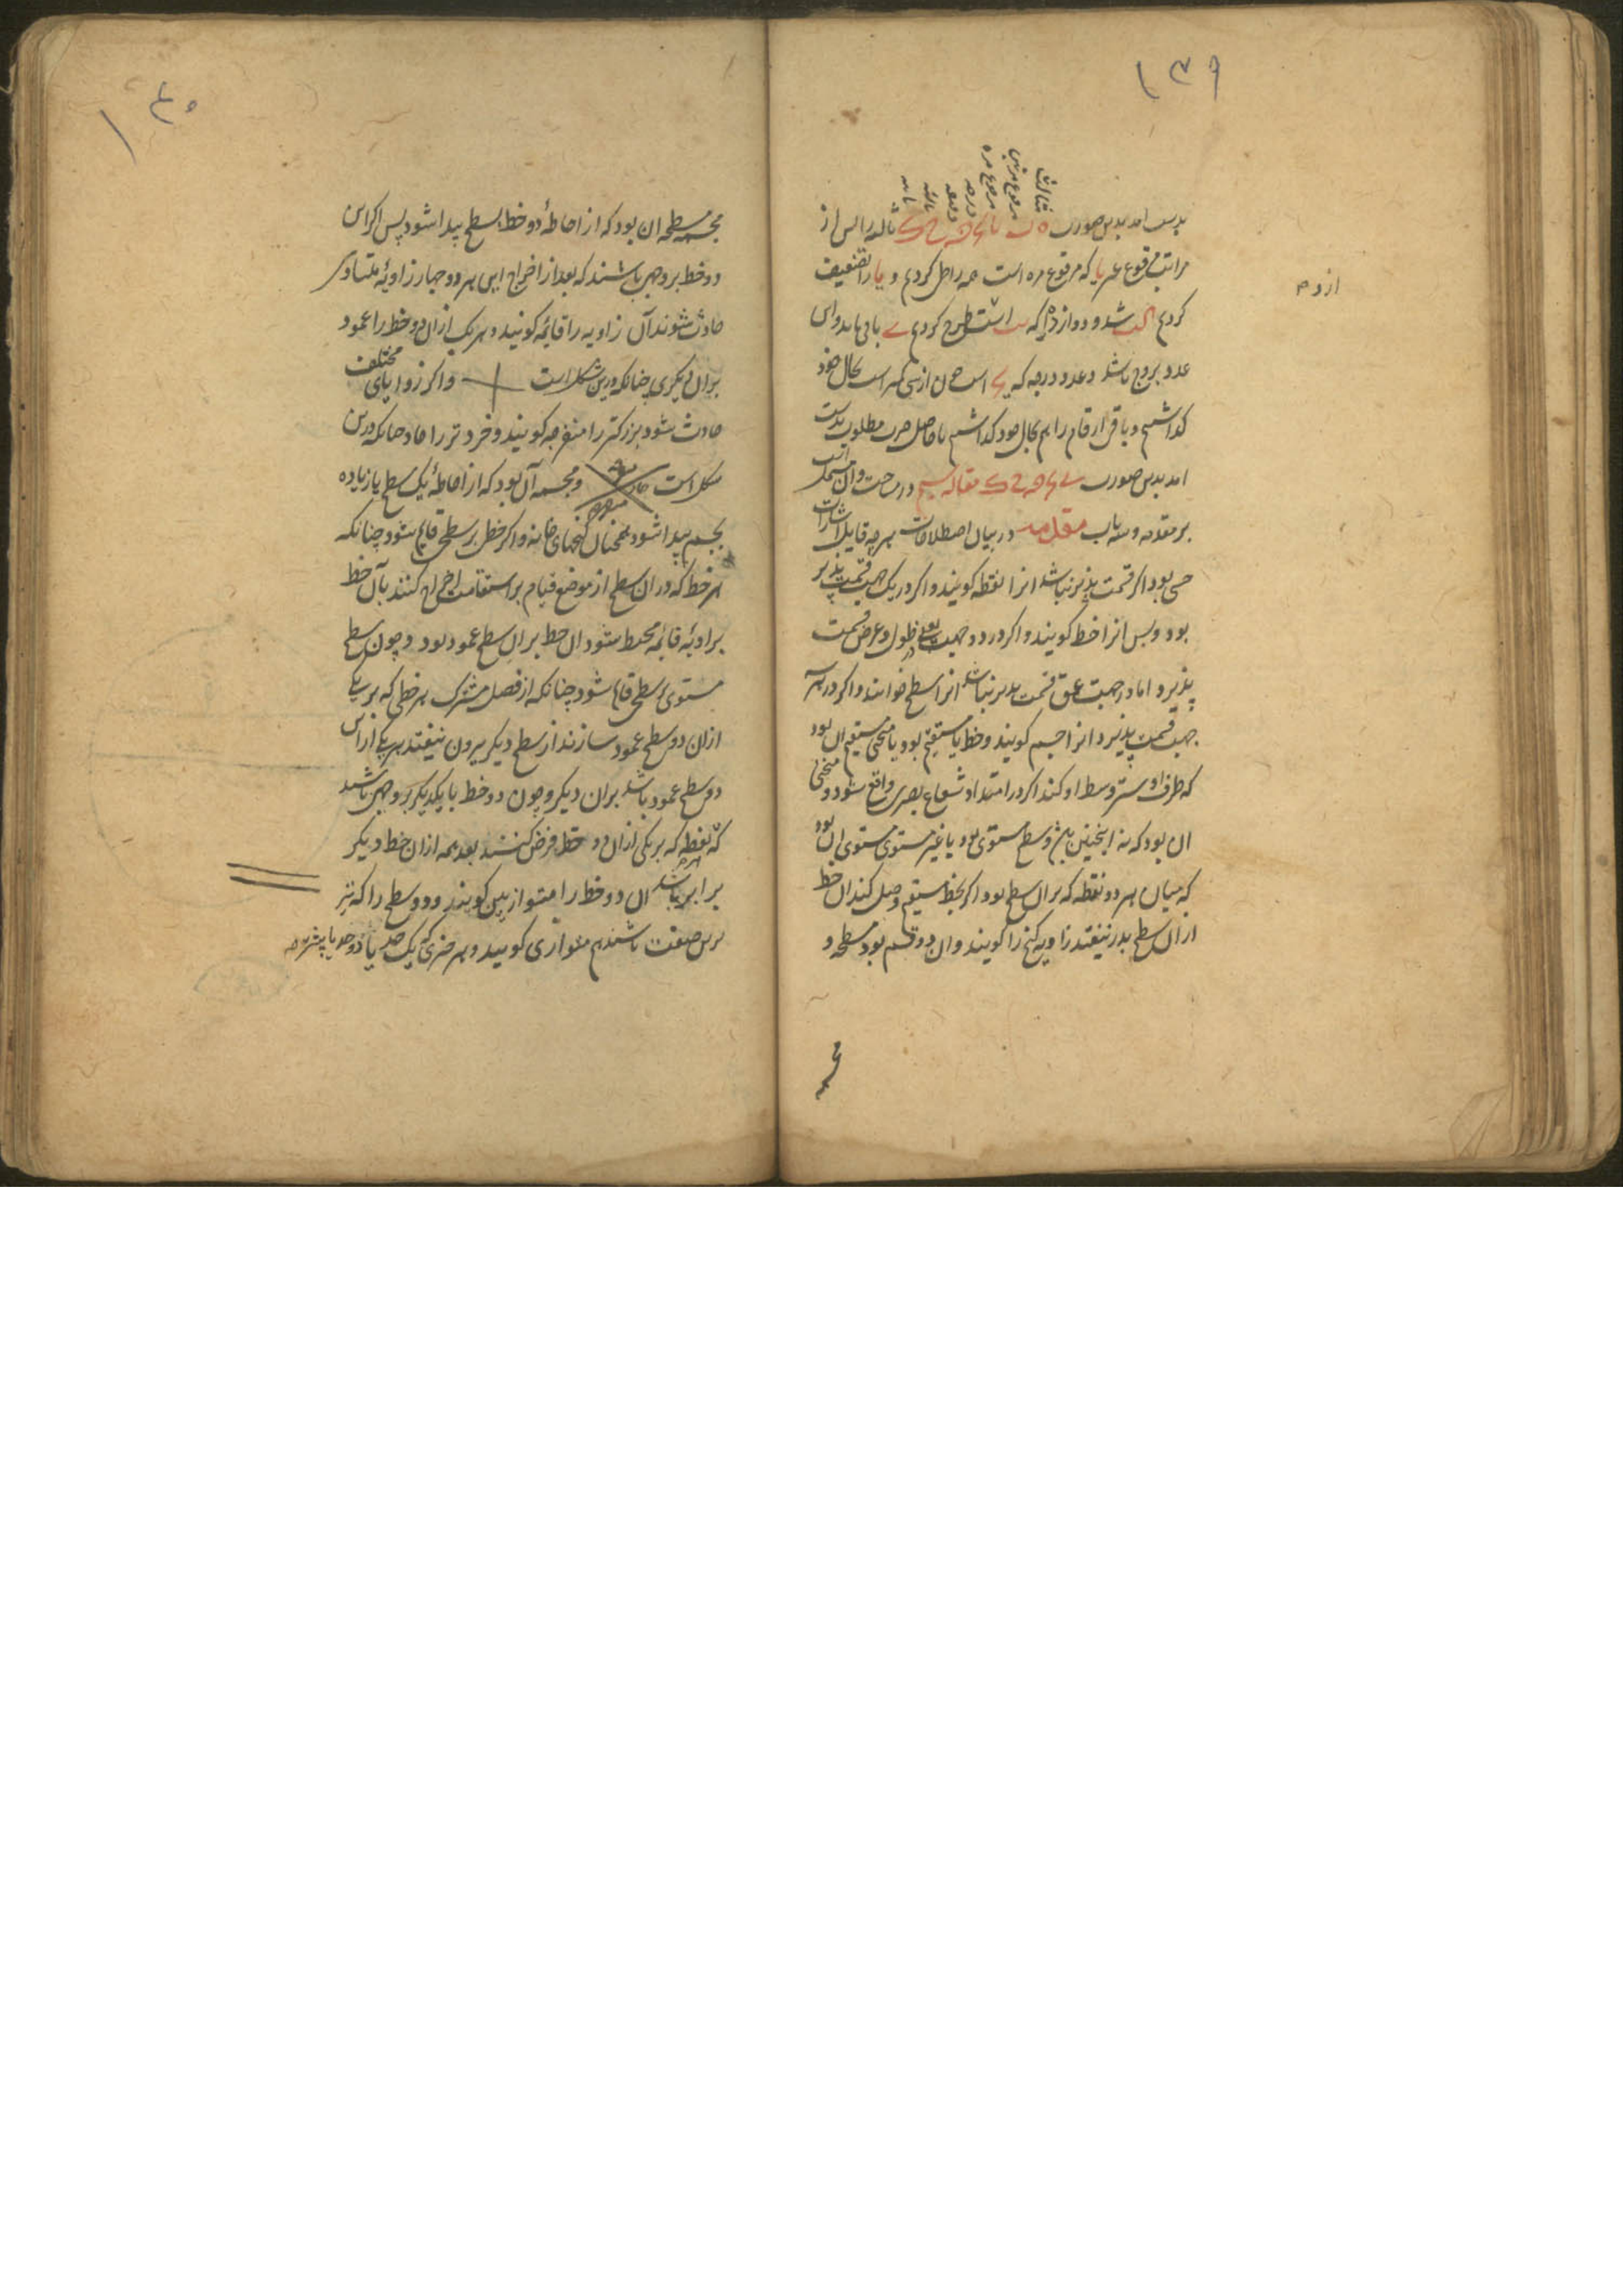 ۱۳۹
ثالث
مرفوع مرتین
مرفوع مره
درجه
دقیقه
ثانیه
ثالثه
بدست امد بدین صورت ثالثه را پس از
مراتب مرفوع عه یا که مرفوع مره است مه را حل کردیم و یا را تضعیف
ازوه
کردیم شد و دوازده را که است طرح کردیم باقی ماند و این
عدد بروج باشد و عدد درجه که است چون از سی کمتر است بحال خود
گذاشتیم و باقی ارقام را هم بحال خود گذاشتیم تا حاصل ضرب مطلوب بدست
امد بدین صورت مقاله سیم در مساحت و آن مشتمل است
بر مقدمه و سه باب مقدمه در بیان اصطلاحات هرچه قابل اشارت
حسی بود اگر قسمت پذیر نباشد انرا نقطه کویند و اکر در یک جهت قسمت پذیر
بود و بس انرا خط کویند و اکر در دو جهت یعنی در طول و عرض قسمت
پذیرد اما در جهت عمق قسمت پذیر نباشد انرا سطح خوانند و اکر در سه
جهت قسمت پذیرد انرا جسم کویند و خط یا مستقیم بود یا منحنی مستقیم ان بود
که طرف او ستر وسط او کند اکر در امتداد شعاع بصری واقع شود و منحنی
ان بود که نه اینچنین باشد و سطح مستوی بود یا غیر مستوی مستوی ان بود
که میان هر دو نقطه که بران سطح بود اکر بخط مستقیم وصل کنند ان خط
ازان سطح بدر نیفتد زاویه کنج را کویند و ان دو قسم بود مسطحه و
۱۴۰
مجسمه مسطحه ان بود که از احاطهٔ دو خط بسطح پیدا شود پس اکر این
دو خط بر وجهی باشند که بعد از اخراج این هر دو چهار زاویهٔ متساوی
حادث شوند آن زاویه را قائمه کویند و هر یک ازان دو خط را عمود
بران دیکری چنانکه درین شکل است و اکر زوایای مختلف
حادث شود بزرکتر را منفرجه کویند و خردتر را حاده چنانکه درین
شکل است حاده منفرجه و مجسمه آن بود که از احاطهٔ یک سطح یا زیاده
بجسم پیدا شود همچنان کنجهای خانه و اکر خطی بر سطحی قایم شود چنانکه
هر خط که در ان سطح از موضع قیام بر استقامت اخراج کنند بآن خط
بزاویهٔ قائمه محیط شود ان خط بران سطح عمود بود و چون سطح
مستوی بر سطحی قایم شود چنانکه از فصل مشترک هر خطی که بر یکی
ازان دو سطح عمود سازند از سطح دیکر بیرون نیفتد هر یکی ازاین
دو سطح عمود باشد بران دیکر و چون دو خط با یکدیکر بر وجهی باشند
که هر نقطه که بر یکی ازان دو خط فرض کنند بعد همه ازان خط دیکر
برابر باشد ان دو خط را متوازیین کویند و دو سطح را که نیز
برین صفت باشند هم متوازی کویند و هر چیزی که یک حد یا دو حد یا بیشتر